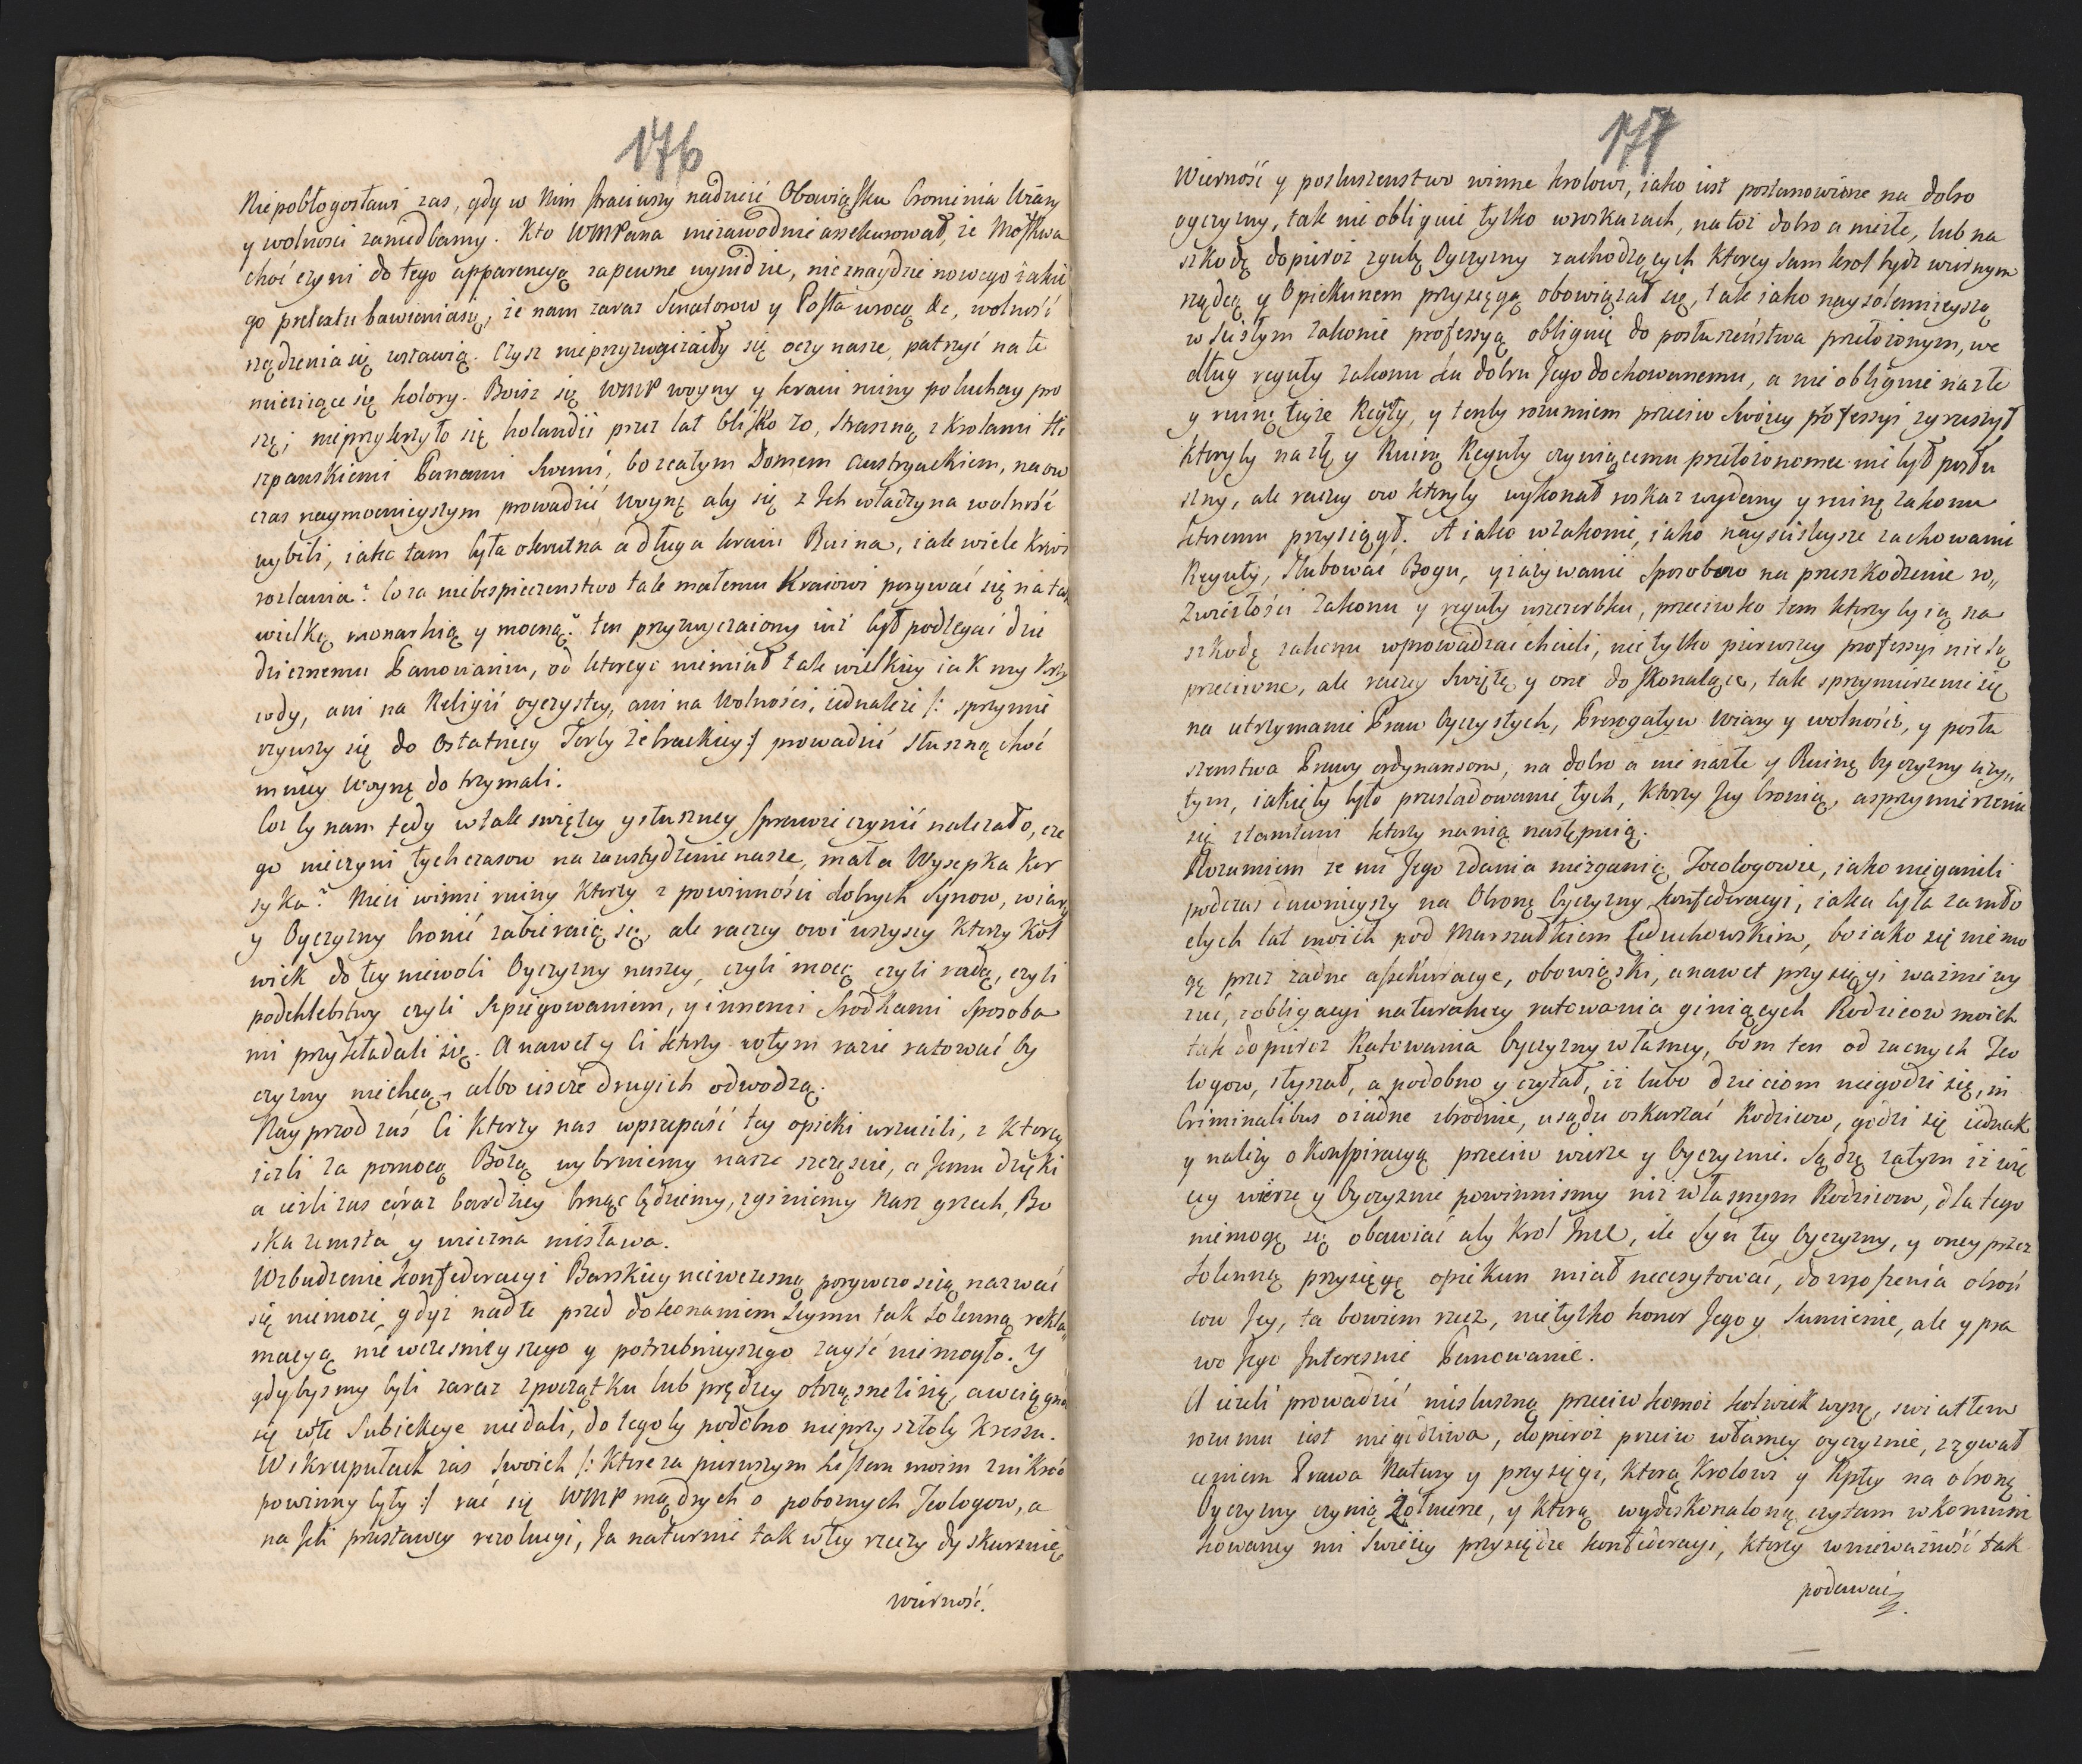 176
Niepobłogosławi zas, gdy w Nim straciwszy nadzieię Obowiąsku bronienia Wiary
y wolnosci zaniedbamy. Kto WMPana niezawodnie assekurował, że Moskwa
choć czyni do tego apparencyą zapewne wyndzie, nieznaydzie nowego iakie
go pretextu bawieniasię, że nam zaraz Senatorow y Posła wrocą &c, wolność
rządzenia się zostawią. Czysz nieprzyzwyczaiły się oczy nasze, patrzyć na te
mieniące się kolory. Boisz się WMP woyny y kraiu ruiny posłuchay pro
szę; nieprzykrzyło się holandii przez lat blisko 70, straszną z Krolami Hi
szpanskiemi Panami Swemi, bo z całym Domem Austryackiem, na ow
czas naymocnieyszym prowadzić Woynę aby się z Ich władzy na wolność
wybili, iaka tam była okrutna a długa kraiu Ruina, iak wiele krwi
rozlania? Co za niebespieczenstwo tak małemu Kraiowi porywać się na tak
wielką monarhią y mocną? ten przyzwyczaiony iuż był podlegać dzie
dzicznemu Panowaniu, od ktorego niemiał tak wielkiey iak my krzy
wdy, ani na Religii oyczystey, ani na Wolności, iednakże /: sprzymie
rzywszy się do Ostatniey Torby żebrackiey :/ prowadzić słuszną choć
mniey Woynę do trzymali.
Coż by nam tedy w tak swiętey y słuszney sprawie czynić należało, cze
go nieczyni tych czasow na zawstydzenie nasze, mała Wysepka Kor
syka? Nieci winni ruiny ktorzy z powinności dobrych Synow, wiary
y Oyczyzny bronić zabieraią się, ale raczey owi wszyscy ktorzy kol
wiek do tey niewoli Oyczyzny naszey, czyli mocą czyli radą, czyli
podchlebstwy czyli Szpiegowaniem, y innemi srodkami sposoba
mi przykładali się. A nawet y Ci ktorzy w tym razie ratować Oy
czyzny niechcą, albo ieszcze drugich odwodzą.
Nayprzod zaś Ci ktorzy nas w przepaść tey opieki wrzucili, z ktorey
ieżli za pomocą Bożą wybrniemy nasze szczęscie, a Jemu dzięki
a ieżli zas coraz bardziey brnąc będziemy, zginiemy Nasz grzech, Bo
ska zemsta y wieczna niesława.
Wzbudzenie konfederacyi Barskiey niewczesną porywczoscią nazwać
się niemoże, gdyż nad te przed dokonaniem Seymu tak solenną rekla
macyą nie wczesnieyszego y potrzebnieyszego zayść niemogło. Y
gdybysmy byli zaraz z początku lub prędzey otrząsneli się, a wciągnąć
się w te Subiekcye niedali, do tego by podobno nieprzyszłoby Kresu.
W skrupułach zas swoich /: ktore za pierwszym Listem moim zniknąć
powinny były :/ rać się WMP mądrych o pobożnych Teologow, a
na Ich przestawey rezolucyi, Ja naturnie tak w tey rzeczy dyskuruię
wierność.
177
Wierność y posłuszenstwo winne krolowi, iako iest postanowione na dobro
oyczyzny, tak nie obliguie tylko w roskazach, na toż dobro a niezłe, lub na
szkodę dopieroż zgubę Oyczyzny zachodzących Ktorey sam krol bydz wiernym
rządcą y Opiekunem przysięgą obowiązał się, tak iako naysolennieyszą
w scisłym zakonie professyą obliguię do posłuszeństwa przełożonym, we
dług reguły zakonu ku dobru Jego dochowanemu, a nie obliguie na złe
y ruinę teyże Reguły, y tenby rozumiem przeciw swoiey professyi zgrzeszył
ktoryby na złę y Ruinę Reguły czyniącemu przełożonemu nie był posłu
szny, ale raczey ow ktoryby wykonał roskaz wydany y ruinę zakonu
ktoremu przysiągł. A iako w zakonie, iako nayscisleysze zachowanie
Reguły, slubować Bogu, y zażywanie sposobow na przeszkodzenie ro„
zwiozłości zakonu y reguły uszczerbku, przeciwko tem ktorzy by ią na
szkodę zakonu wprowadzać chcieli, nie tylko pierwszey professyi nie są
przeciwne, ale raczey swiętę y one doskonalące, tak sprzymierzenie się
na utrzymanie Praw Oyczystych, Prerogatyw Wiary y wolności, y posłu
szenstwa Prawy ordynansom, na dobro a nie na złe y Ruinę Oyczyzny czy„
tym, iakieby było przesladowanie tych, ktorzy Jey bronią, a sprzymierzenie
się z tamtemi ktorzy na nią następuią.
Rozumiem ze mi Jego zdania niezganią Teologowie, iako nieganili
podczas dawnieyszy na Obronę Oyczyzny konfederacyi, iaka była za mło
dych lat moich pod Marszałkiem Leduchowskim, bo iako się niemo
gę przez żadne assekuracye, obowiąski, a nawet przysięgi ważnie wy
zuć, z obligacyi naturalney ratowania giniących Rodzicow moich
tak dopieroż Ratowania Oyczyzny własney, bom ten od zacnych Teo
logow, słyszał, a podobno y czytał, iż lubo dzieciom niegodzi się, in
Criminalibus o żadne zbrodnie, u sądu oskarżać Rodzicow, godzi się iednak
y należy o Konspiracyą przeciw wierze y Oyczyznie. Sądzę zatym iż wię
cey wierze y Oyczyznie powinnismy niż własnym Rodzicom, dla tego
niemogę się obawiać aby Krol Jmć, ile syn tey Oyczyzny, y oney przez
solenną przysięgę opiekun miał necessytować, do znoszenia obroń
cow Jey, ta bowiem rzecz, nietylko honor Jego y Sumienie, ale y pra
wo Jego Interessuie Panowanie.
A ieżeli prowadzić niesłuszną przeciw komoż kolwiek woynę, swiatłem
rozumu iest niegodziwa, dopieroż przeciw własney oyczyznie, z zgwał
ceniem Prawa Natury y przysięgi, ktorą Krolowi y Rptey na obronę
Oyczyzny czynią żołnierze, y ktorą wydoskonaloną czytam w kommuni
kowaney mi swieżey przysiędze konfederacyi, ktorey w nieważność tak
podawać